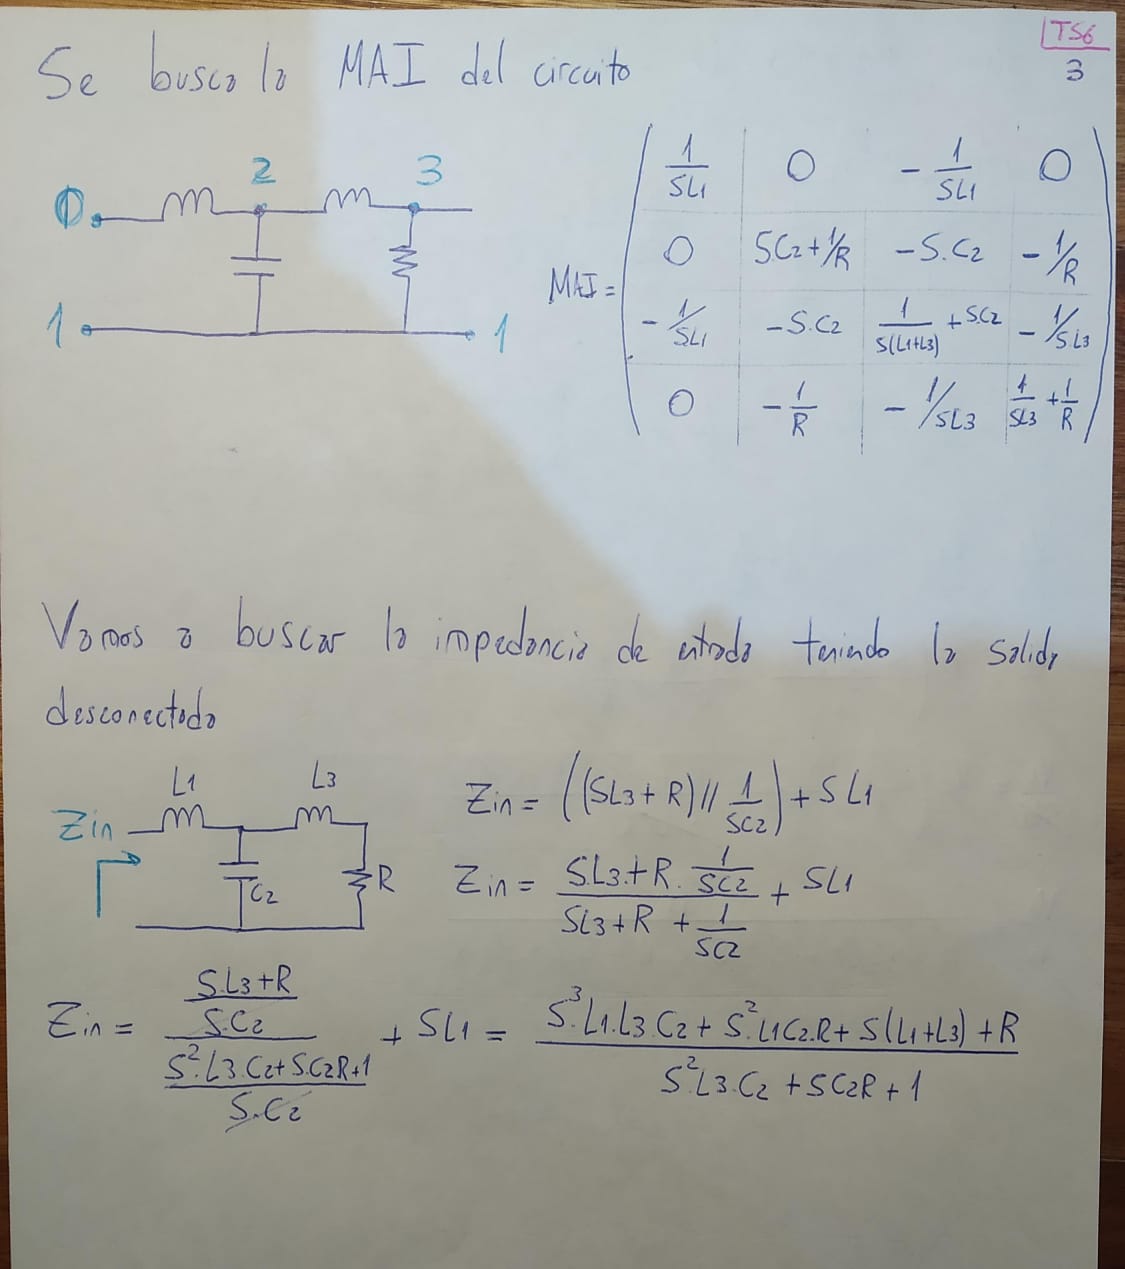 TS6
3
Se busca la MAI del circuito
0 2 3
1 1
MAI =
1/SL1 0 - 1/SL1 0
0 S.C2+1/R -S.C2 -1/R
-1/SL1 -S.C2 1/S(L1+L3) +S.C2 -1/SL3
0 -1/R -1/SL3 1/SL3 + 1/R
Vamos a buscar la impedancia de entrada teniendo la salida
desconectada
L1 L3
Zin
C2 R
Zin = ((SL3+R)// 1/SC2) + SL1
Zin = (S.L3+R. 1/SC2)/(SL3+R + 1/SC2) + SL1
Zin = ((S.L3+R)/(S.C2))/((S².L3.C2+S.C2R+1)/(S.C2)) + SL1 = (S³.L1.L3.C2 + S².L1C2.R + S(L1+L3) + R)/(S²L3.C2 + SC2R + 1)